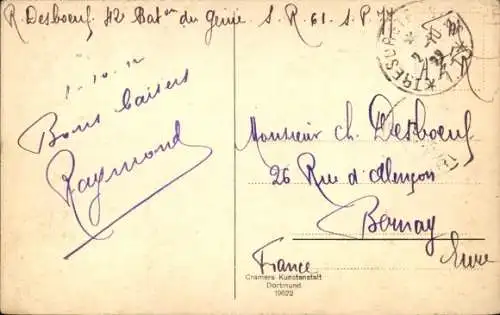 R. Desboeuf 42 Bat on du Genie S. R. 61. S. P. 77
Bons baisers
Raymond
Monsieur Ch. Desboeuf
26 Rue d'Alençon
Bernay
Eure
France
Cramers Kunstanstalt
Dortmund
19622